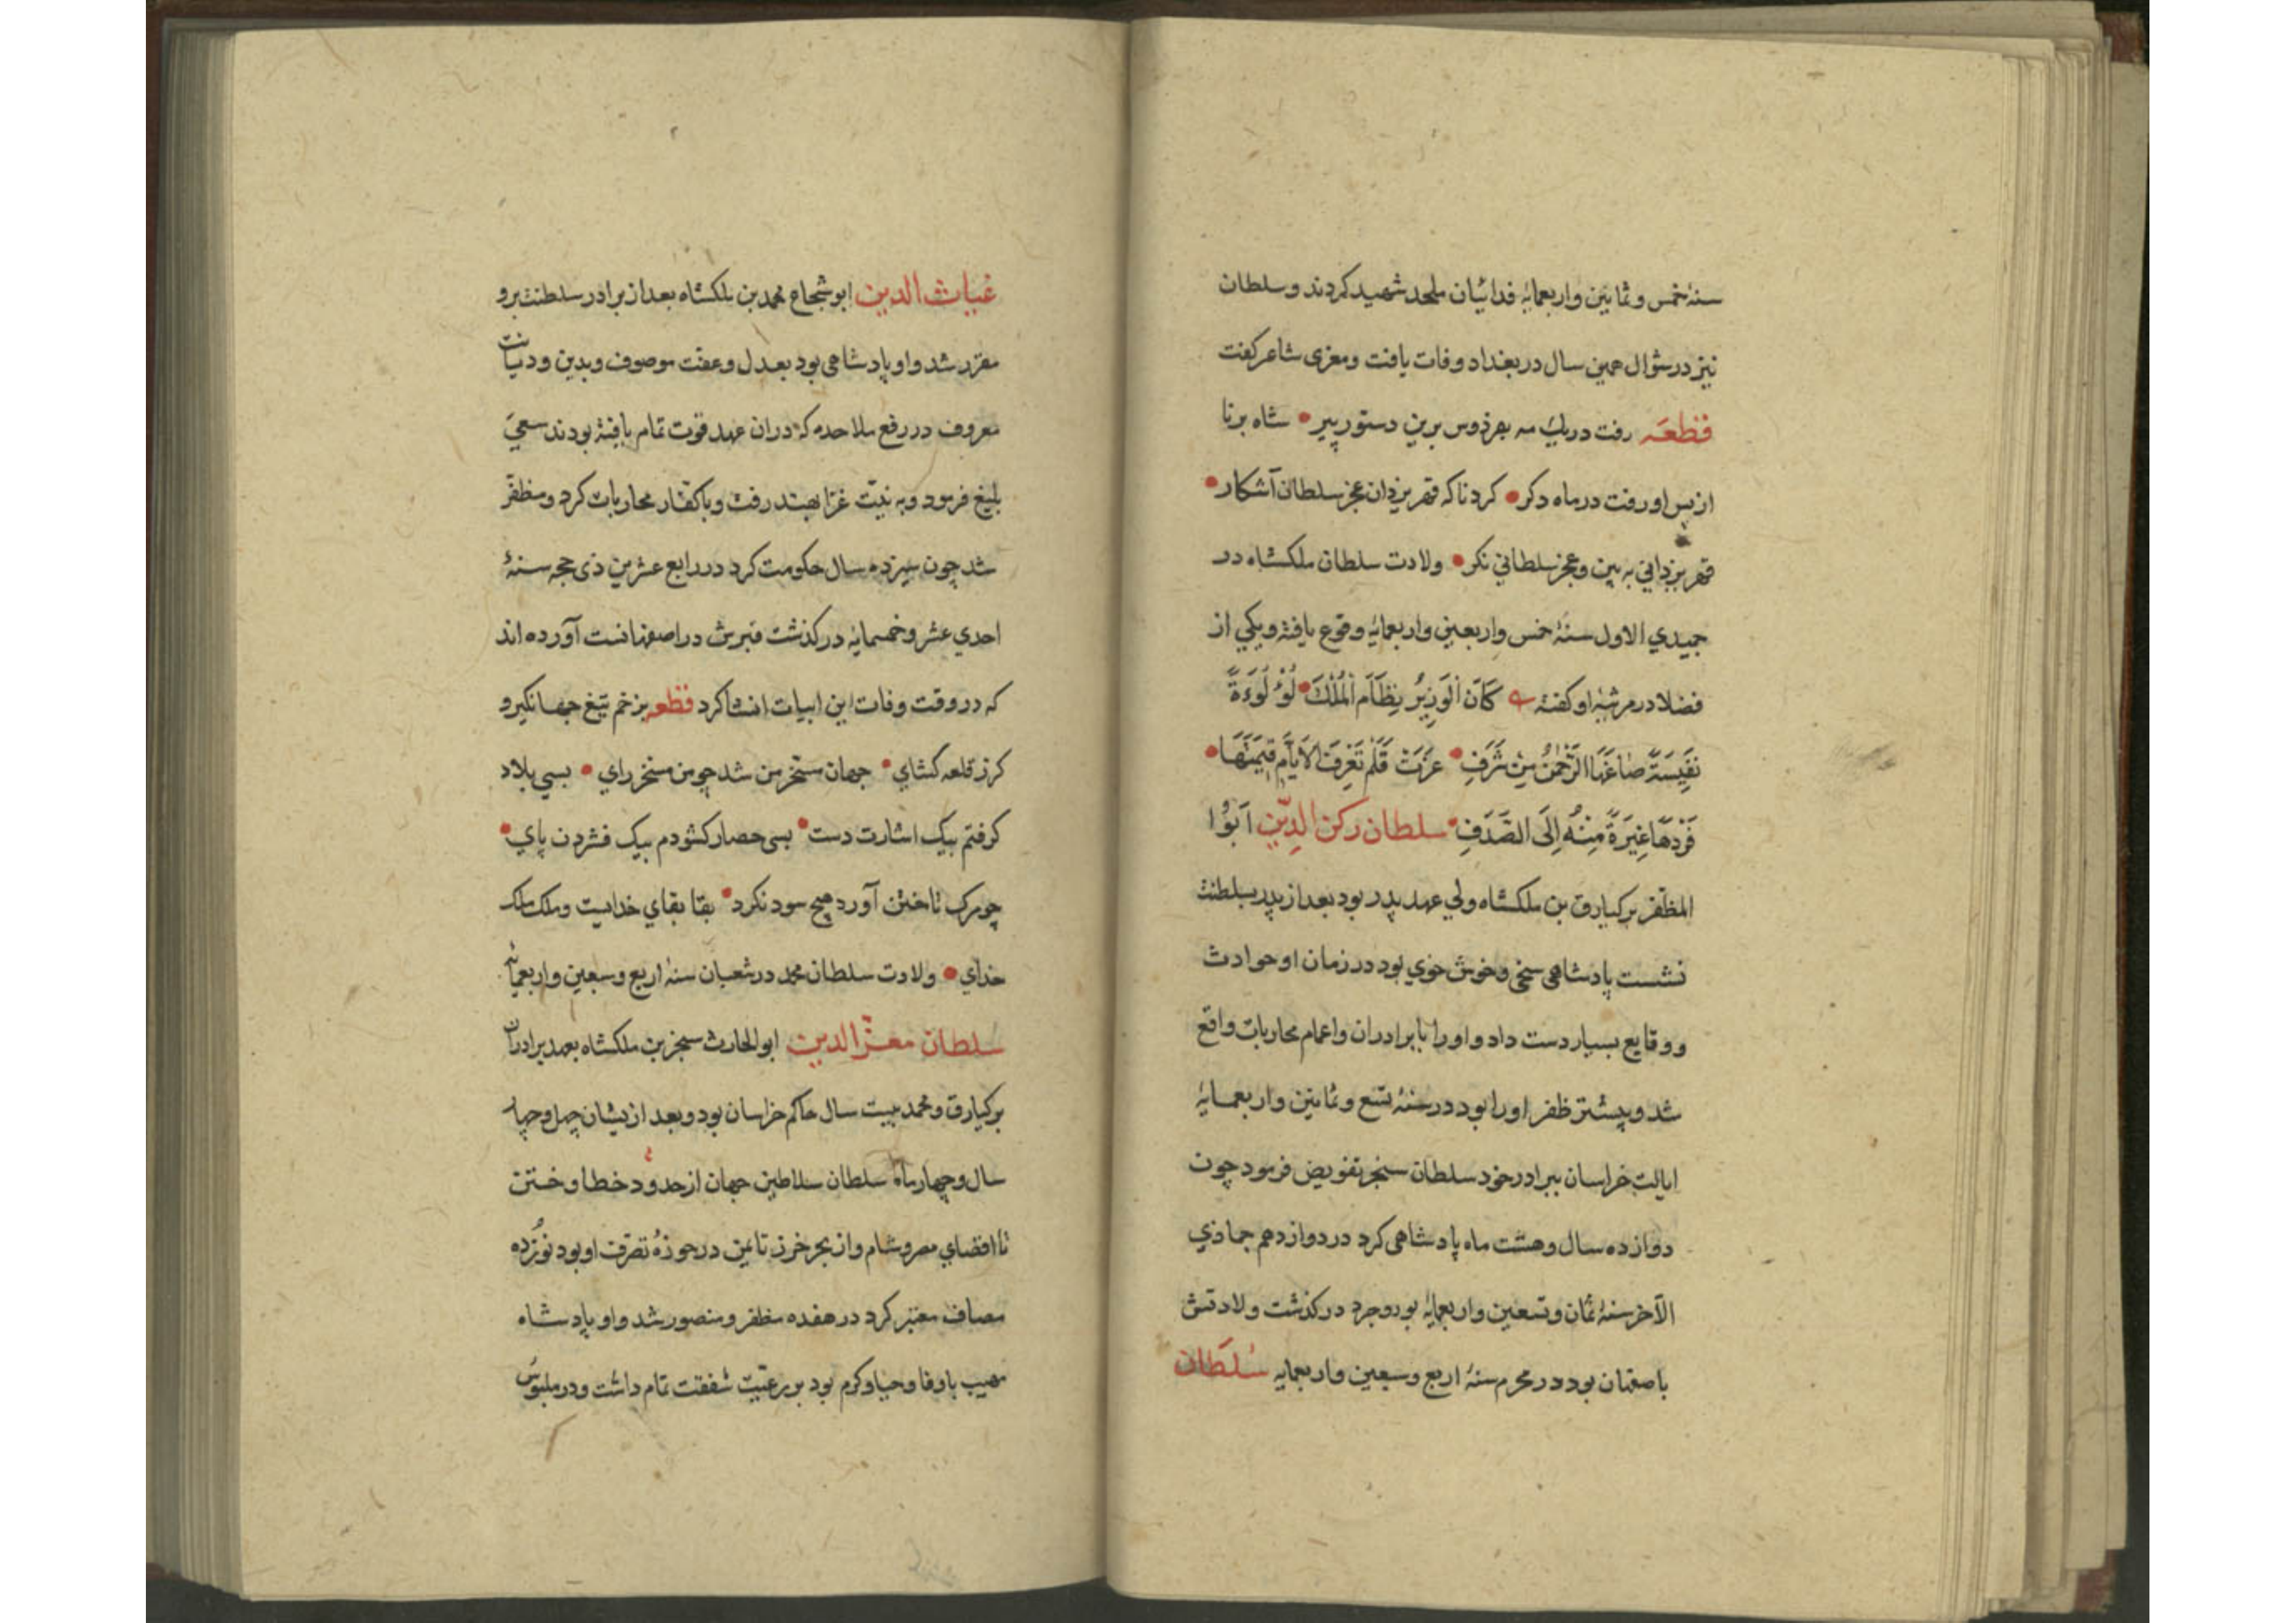 سنهٔ خمس و ثمانین و اربعمایهٔ فدائیان ملحد شهید کردند و سلطان
نیز در شوّال همین سال در بغداد وفات یافت و معزی شاعر کفت
قطعَه رفت در یك مه بفردوس برین دستور پیر • شاه برنا
از پس او رفت در ماه دکر • کرد ناکه قهر یزدان عجز سلطان آشکار •
قهر یزدانی به بین و عجز سلطانی نکر • ولادت سلطان ملکشاه در
جمیدی الاول سنهٔ خمس و اربعین و اربعمایهٔ وقوع یافته و یکی از
فضلا در مرثیهٔ او کفته كَانَ الْوَزِيرُ نِظَامَ الْمُلْكَ • لُؤْ لُؤَةً
نَفِيسَةً صَاغَهَا الرَّحْمٰنُ مِنْ شَرَفٍ • عَزَّتْ فَلَمْ تَعْرِفِ الاَيَّامُ قِيمَتَهَا •
فَرَدَّهَا غَيْرَةً مِنْهُ اِلَى الصَّدَفِ • سلطان رکن الدِّین اَبُوا
المظفر برکیارق بن ملکشاه ولی عهد پدر بود بعد از پدر بسلطنت
نشست پادشاهی سخی و خوش خوی بود در زمان او حوادث
و وقایع بسیار دست داد و او را با برادران و اعمام محاربات واقع
شد و بیشتر ظفر او را بود در سنهٔ تسع و ثمانین و اربعمایهٔ
ایالت خراسان ببرادر خود سلطان سنجر تفویض فرمود چون
دوازده سال و هشت ماه پادشاهی کرد در دوازدهم جماذی
الآخر سنهٔ ثمان و تسعین و اربعمایهٔ بوروجرد درکذشت ولادتش
باصفهان بود در محرم سنهٔ اربع و سبعین و اربعمایه سُلطَان
غیاث الدین ابو شجاع محمد بن ملکشاه بعد از برادر سلطنت برو
مقرر شد و او پادشاهی بود بعدل و عفت موصوف و بدین و دیانت
معروف در رفع ملاحده که دران عهد قوت تمام یافته بودند سعی
بلیغ فرمود و به نیّت غزا بهند رفت و با کفّار محاربات کرد و مظفّر
شد چون سیزده سال حکومت کرد در رابع عشرین ذی حجه سنهٔ
احدی عشر و خمسمایه درکذشت قبرش در اصفهانست آورده اند
که در وقت وفات این ابیات انشا کرد قطعه بزخم تیغ جهانکیر و
کرز قلعه کشای • جهان مسخّر من شد چو من مسخر رای • بسی بلاد
کرفتم بیک اشارت دست • بسی حصار کشودم بیک فشردن پای •
چو مرک تاختن آورد هیچ سود نکرد • بقا بقای خدایست و ملک ملک
خدای • ولادت سلطان محمد در شعبان سنهٔ اربع و سبعین و اربعمایه
سلطان معزّ الدین ابو الحارث سنجر بن ملکشاه بعهد برادران
برکیارق و محمد بیست سال حاکم خراسان بود و بعد ازیشان چهل و چهار
سال و چهار ماه سلطان سلاطین جهان از حدود خطا و ختن
تا اقصای مصر و شام و از بحر خرز تا یمن در حوزهٔ تصرّف او بود نوزده
مصاف معتبر کرد در هفده مظفر و منصور شد و او پادشاه
مهیب با وفا و حیا و کرم بود بر رعیّت شفقت تمام داشت و در ملبوس